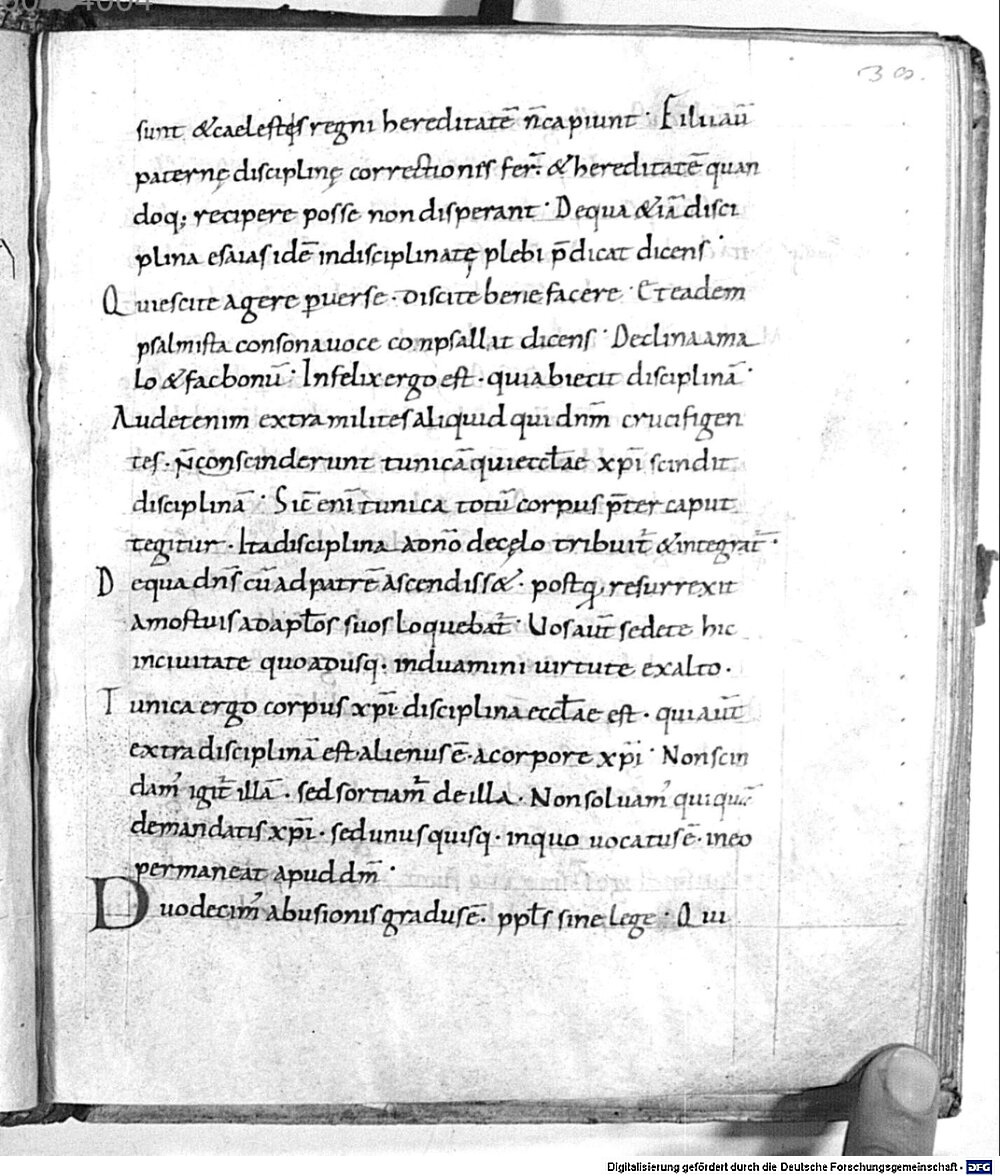 30.
sunt &caelestẹs regni hereditatē n̄ capiunt · Filii aū
paternę disciplinę correctionis fer̄· & hereditatē quan
doq; recipere posse non disperant · De qua & iā disci
plina esaias idē indisciplinatę plebi p̄dicat dicens ·
Quiescite agere ꝑuerse · discite bene facere · Et eadem
psalmista consona uoce compsallat dicens · Declina a ma
lo & fac bonū · Infelix ergo est · qui abiecit disciplinā ·
Audet enim extra milites aliquid qui dnm̄ crucifigen
tes · n̄ conscinderunt tunicā qui eccłae xp̄i scindit
disciplinā · Sic̄ enī tunica totū corpus p̄ter caput
tegitur · Ita disciplina adnō de cęlo tribuit̄ & integrat̄ ·
De qua dn̄s cū ad patrē ascendiss& · postq̄ resurrexit
a mostuis ad apłos suos loquebat̄ · Uos aūt sedete hic
in ciuitate quo adusq · induamini uirtute ex alto ·
Tunica ergo corpus xp̄i disciplina eccłae est · qui aūt
extra disciplinā est alienus ē · a corpore xp̄i · Non scin
dam' igit̄ illā · sed sortiam̄ de illa · Non soluam' quiquā
de mandatis xp̄i · sed unusquisq · in quo uocatus ē · in eo
permaneat apud dm̄ ·
Duodecim' abusionis gradus ē · ppłs sine lege · Qui
Digitalisierung gefördert durch die Deutsche Forschungsgemeinschaft - DFG